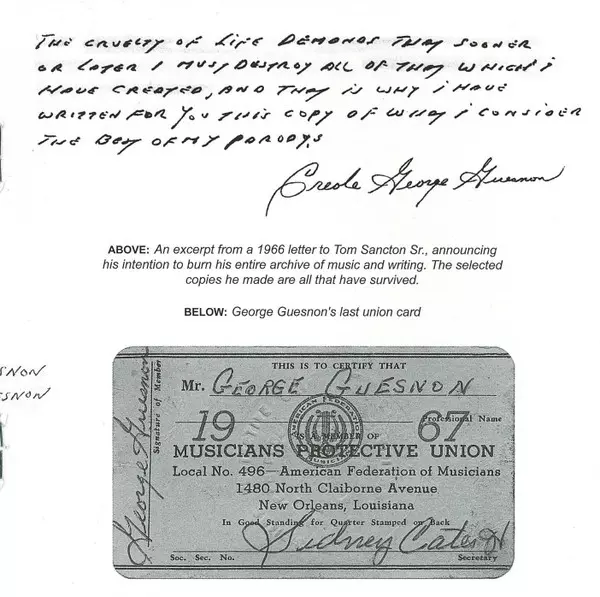 THE CRUELTY OF LIFE DEMANDS THAT SOONER
OR LATER I MUST DESTROY ALL OF THAT WHICH I
HAVE CREATED, AND THAT IS WHY I HAVE
WRITTEN FOR YOU THIS COPY OF WHAT I CONSIDER
THE BEST OF MY PARODYS
Creole George Guesnon
ABOVE: An excerpt from a 1966 letter to Tom Sancton Sr., announcing
his intention to burn his entire archive of music and writing. The selected
copies he made are all that have survived.
BELOW: George Guesnon's last union card
SNON
ESNON
THIS IS TO CERTIFY THAT
Mr. GEORGE GUESNON
Professional Name
19 67
IS A MEMBER OF
AMERICAN FEDERATION
MUSICIANS
MUSICIANS PROTECTIVE UNION
Local No. 496—American Federation of Musicians
1480 North Claiborne Avenue
New Orleans, Louisiana
In Good Standing for Quarter Stamped on Back
Sidney Cates
Soc. Sec. No.
Secretary
George Guesnon
Signature of Member